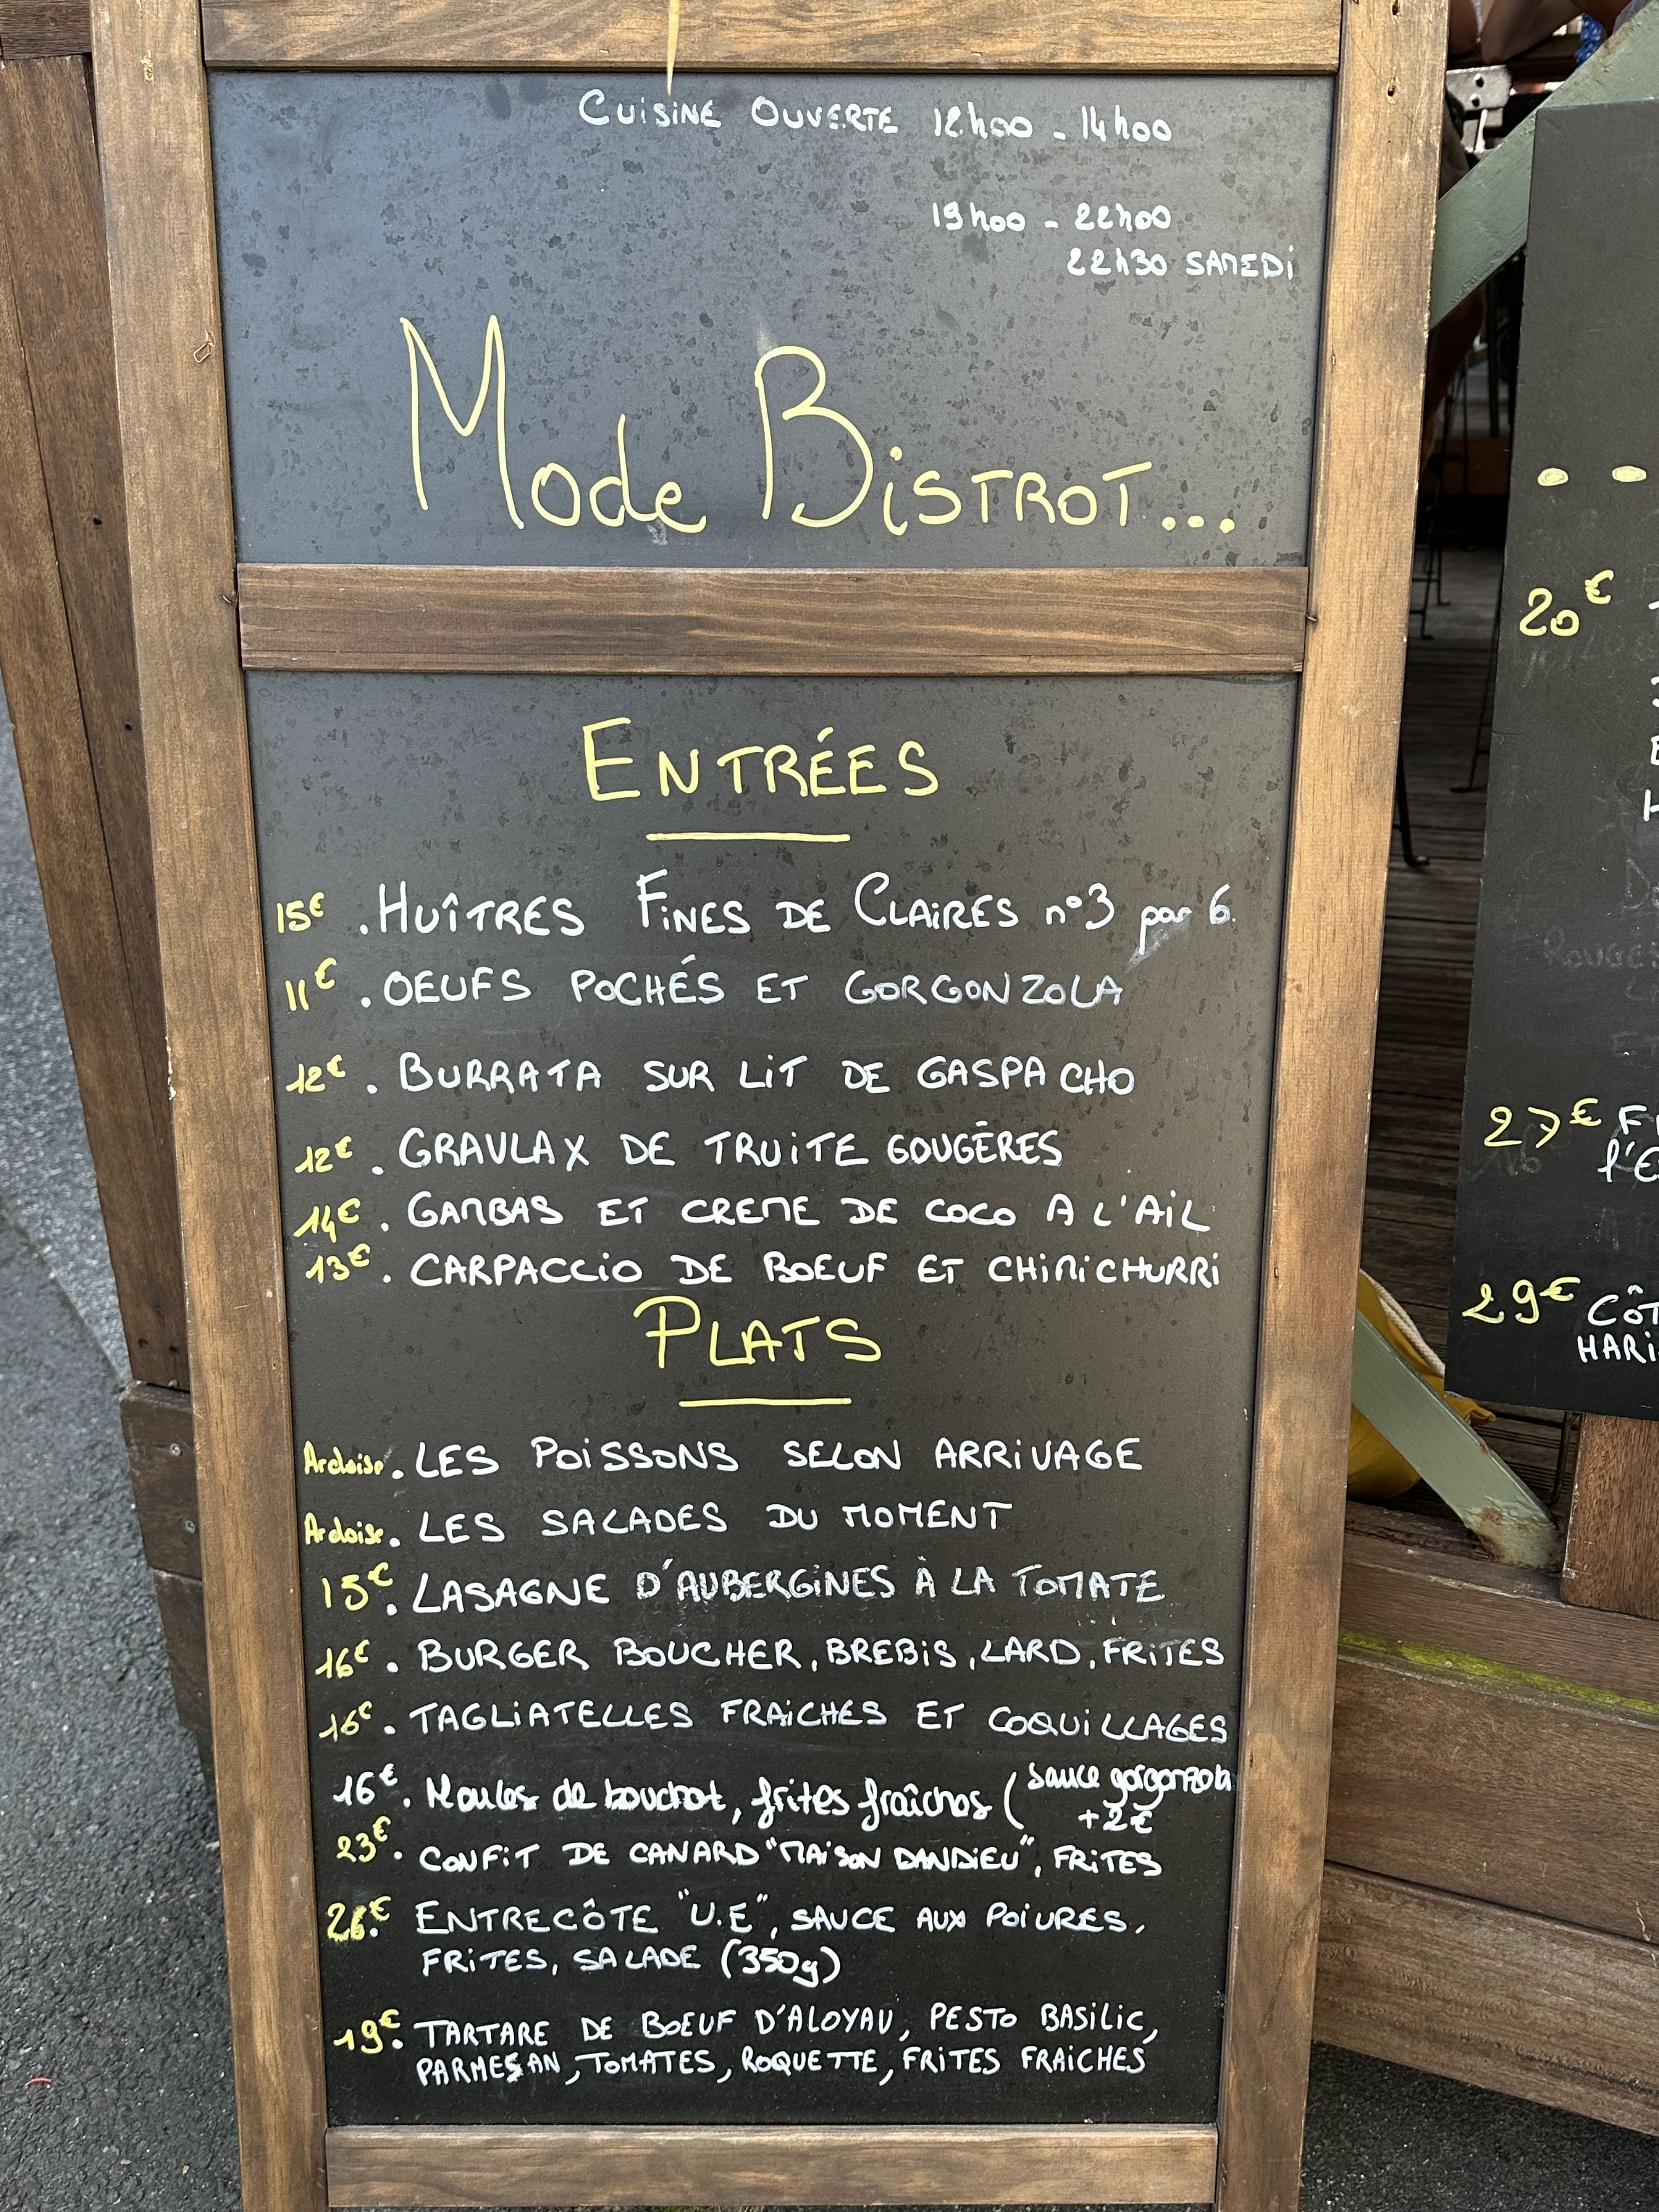 CUISINE OUVERTE 12h00 - 14h00
19h00 - 22h00
22h30 SAMEDI
Mode BISTROT...
ENTRÉES
15€ . HUÎTRES FINES DE CLAIRES n°3 par 6.
11€ . OEUFS POCHÉS ET GORGONZOLA
12€ . BURRATA SUR LIT DE GASPACHO
12€ . GRAVLAX DE TRUITE GOUGÈRES
14€ . GAMBAS ET CREME DE COCO A L'AIL
13€ . CARPACCIO DE BOEUF ET CHIMICHURRI
PLATS
Ardoise . LES POISSONS SELON ARRIVAGE
Ardoise . LES SALADES DU MOMENT
15€ . LASAGNE D'AUBERGINES À LA TOMATE
16€ . BURGER BOUCHER, BREBIS, LARD, FRITES
16€ . TAGLIATELLES FRAICHES ET COQUILLAGES
16€ . Moules de bouchot, frites fraîches (sauce gorgonzola
+2€
23€ . CONFIT DE CANARD "MAISON DANDIEU", FRITES
26€ . ENTRECÔTE "U.E", SAUCE AUX POIVRES,
FRITES, SALADE (350g)
19€ . TARTARE DE BOEUF D'ALOYAU, PESTO BASILIC,
PARMESAN, TOMATES, ROQUETTE, FRITES FRAICHES
20€
27€
29€